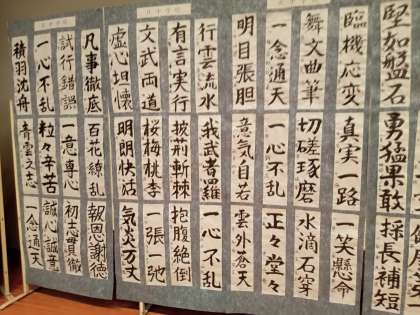 堅如盤石
臨機応変
舞文曲筆
一念通天
明目張胆
行雲流水
有言実行
文武両道
虚心坦懐
凡事徹底
試行錯誤
一心不乱
積羽沈舟
勇猛果敢
真実一路
切磋琢磨
一心不乱
意気自若
我武者羅
披荊斬棘
桜梅桃李
明朗快活
百花繚乱
一意専心
粒々辛苦
青雲之志
採長補短
一笑懸命
水滴石穿
正々堂々
雲外蒼天
一心不乱
抱腹絶倒
一張一弛
気炎万丈
報恩謝徳
初志貫徹
誠心誠意
一念通天